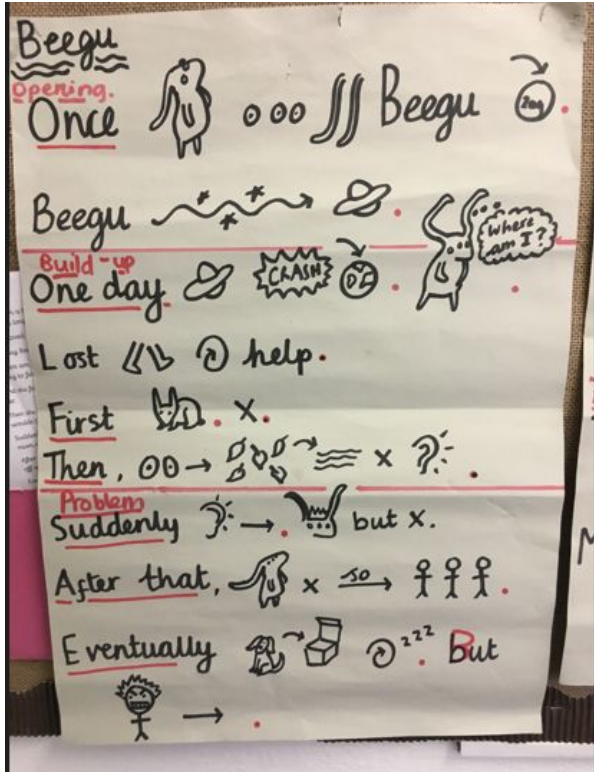 Beegu
Opening.
Once Beegu Zog.
Beegu .
where am I?
Build-up
One day. CRASH .
Lost help.
First . X.
Then, X .
Problem
Suddenly . but X.
After that, X so .
Eventually zzz. But
.